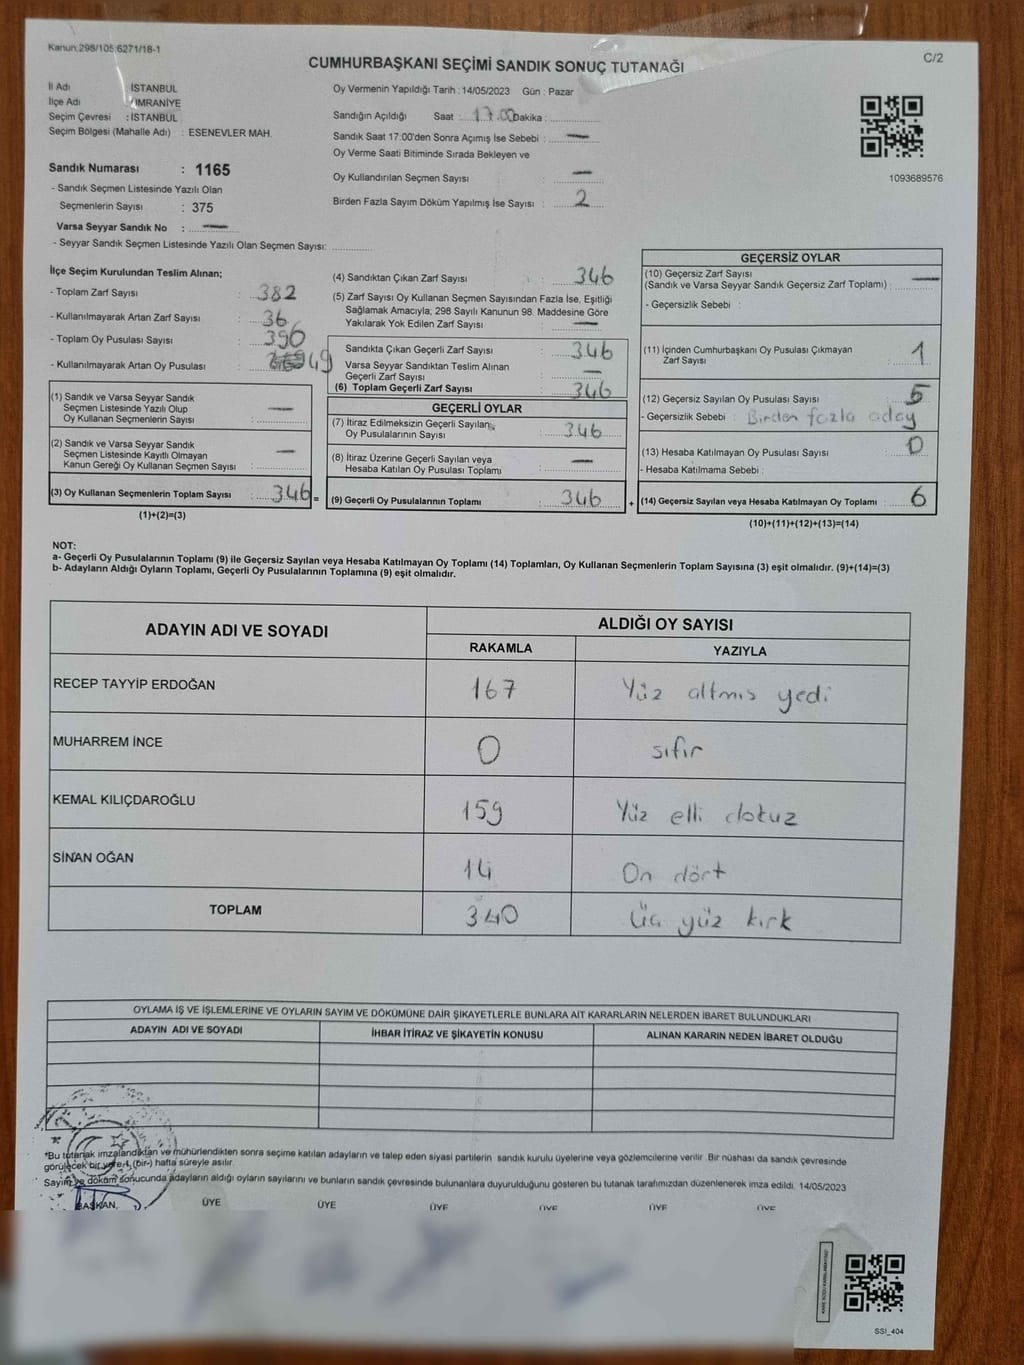 Kanun:298/105;6271/18-1
C/2
CUMHURBAŞKANI SEÇİMİ SANDIK SONUÇ TUTANAĞI
İl Adı : İSTANBUL
İlçe Adı ÜMRANİYE
Seçim Çevresi : İSTANBUL
Seçim Bölgesi (Mahalle Adı) : ESENEVLER MAH.
Sandık Numarası : 1165
- Sandık Seçmen Listesinde Yazılı Olan
Seçmenlerin Sayısı : 375
Varsa Seyyar Sandık No : —
- Seyyar Sandık Seçmen Listesinde Yazılı Olan Seçmen Sayısı:
Oy Vermenin Yapıldığı Tarih : 14/05/2023 Gün : Pazar
Sandığın Açıldığı Saat : 17.00 Dakika :
Sandık Saat 17:00'den Sonra Açımış İse Sebebi : —
Oy Verme Saati Bitiminde Sırada Bekleyen ve
Oy Kullandırılan Seçmen Sayısı —
Birden Fazla Sayım Döküm Yapılmış İse Sayısı : 2
1093689576
İlçe Seçim Kurulundan Teslim Alınan;
- Toplam Zarf Sayısı : 382
- Kullanılmayarak Artan Zarf Sayısı : 36
- Toplam Oy Pusulası Sayısı : 396
- Kullanılmayarak Artan Oy Pusulası : 49
(1) Sandık ve Varsa Seyyar Sandık
Seçmen Listesinde Yazılı Olup
Oy Kullanan Seçmenlerin Sayısı : —
(2) Sandık ve Varsa Seyyar Sandık
Seçmen Listesinde Kayıtlı Olmayan
Kanun Gereği Oy Kullanan Seçmen Sayısı : —
(3) Oy Kullanan Seçmenlerin Toplam Sayısı : 346 =
(1)+(2)=(3)
(4) Sandıktan Çıkan Zarf Sayısı : 346
(5) Zarf Sayısı Oy Kullanan Seçmen Sayısından Fazla İse, Eşitliği
Sağlamak Amacıyla; 298 Sayılı Kanunun 98. Maddesine Göre
Yakılarak Yok Edilen Zarf Sayısı : —
Sandıkta Çıkan Geçerli Zarf Sayısı : 346
Varsa Seyyar Sandıktan Teslim Alınan
Geçerli Zarf Sayısı : —
(6) Toplam Geçerli Zarf Sayısı : 346
GEÇERLİ OYLAR
(7) İtiraz Edilmeksizin Geçerli Sayılan
Oy Pusulalarının Sayısı : 346
(8) İtiraz Üzerine Geçerli Sayılan veya
Hesaba Katılan Oy Pusulası Toplamı : —
(9) Geçerli Oy Pusulalarının Toplamı : 346 +
GEÇERSİZ OYLAR
(10) Geçersiz Zarf Sayısı
(Sandık ve Varsa Seyyar Sandık Geçersiz Zarf Toplamı) : —
- Geçersizlik Sebebi :
(11) İçinden Cumhurbaşkanı Oy Pusulası Çıkmayan
Zarf Sayısı : 1
(12) Geçersiz Sayılan Oy Pusulası Sayısı : 5
- Geçersizlik Sebebi : Birden fazla aday
(13) Hesaba Katılmayan Oy Pusulası Sayısı : 0
- Hesaba Katılmama Sebebi :
(14) Geçersiz Sayılan veya Hesaba Katılmayan Oy Toplamı : 6
(10)+(11)+(12)+(13)=(14)
NOT:
a- Geçerli Oy Pusulalarının Toplamı (9) ile Geçersiz Sayılan veya Hesaba Katılmayan Oy Toplamı (14) Toplamları, Oy Kullanan Seçmenlerin Toplam Sayısına (3) eşit olmalıdır. (9)+(14)=(3)
b- Adayların Aldığı Oyların Toplamı, Geçerli Oy Pusulalarının Toplamına (9) eşit olmalıdır.
ADAYIN ADI VE SOYADI ALDIĞI OY SAYISI
RAKAMLA YAZIYLA
RECEP TAYYİP ERDOĞAN 167 Yüz altmış yedi
MUHARREM İNCE 0 sıfır
KEMAL KILIÇDAROĞLU 159 Yüz elli dokuz
SİNAN OĞAN 14 On dört
TOPLAM 340 Üç yüz kırk
OYLAMA İŞ VE İŞLEMLERİNE VE OYLARIN SAYIM VE DÖKÜMÜNE DAİR ŞİKAYETLERLE BUNLARA AİT KARARLARIN NELERDEN İBARET BULUNDUKLARI
ADAYIN ADI VE SOYADI İHBAR İTİRAZ VE ŞİKAYETİN KONUSU ALINAN KARARIN NEDEN İBARET OLDUĞU
*Bu tutanak imzalandıktan ve mühürlendikten sonra seçime katılan adayların ve talep eden siyasi partilerin sandık kurulu üyelerine veya gözlemcilerine verilir. Bir nüshası da sandık çevresinde
görülecek bir yere 1 (bir) hafta süreyle asılır.
Sayım ve döküm sonucunda adayların aldığı oyların sayılarını ve bunların sandık çevresinde bulunanlara duyurulduğunu gösteren bu tutanak tarafımızdan düzenlenerek imza edildi. 14/05/2023
BAŞKAN, ÜYE ÜYE ÜYE ÜYE ÜYE ÜYE
SSİ_404